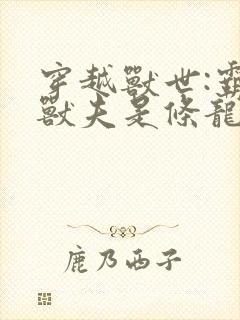 穿越獸世:霸
獸夫是條龍
鹿乃西子